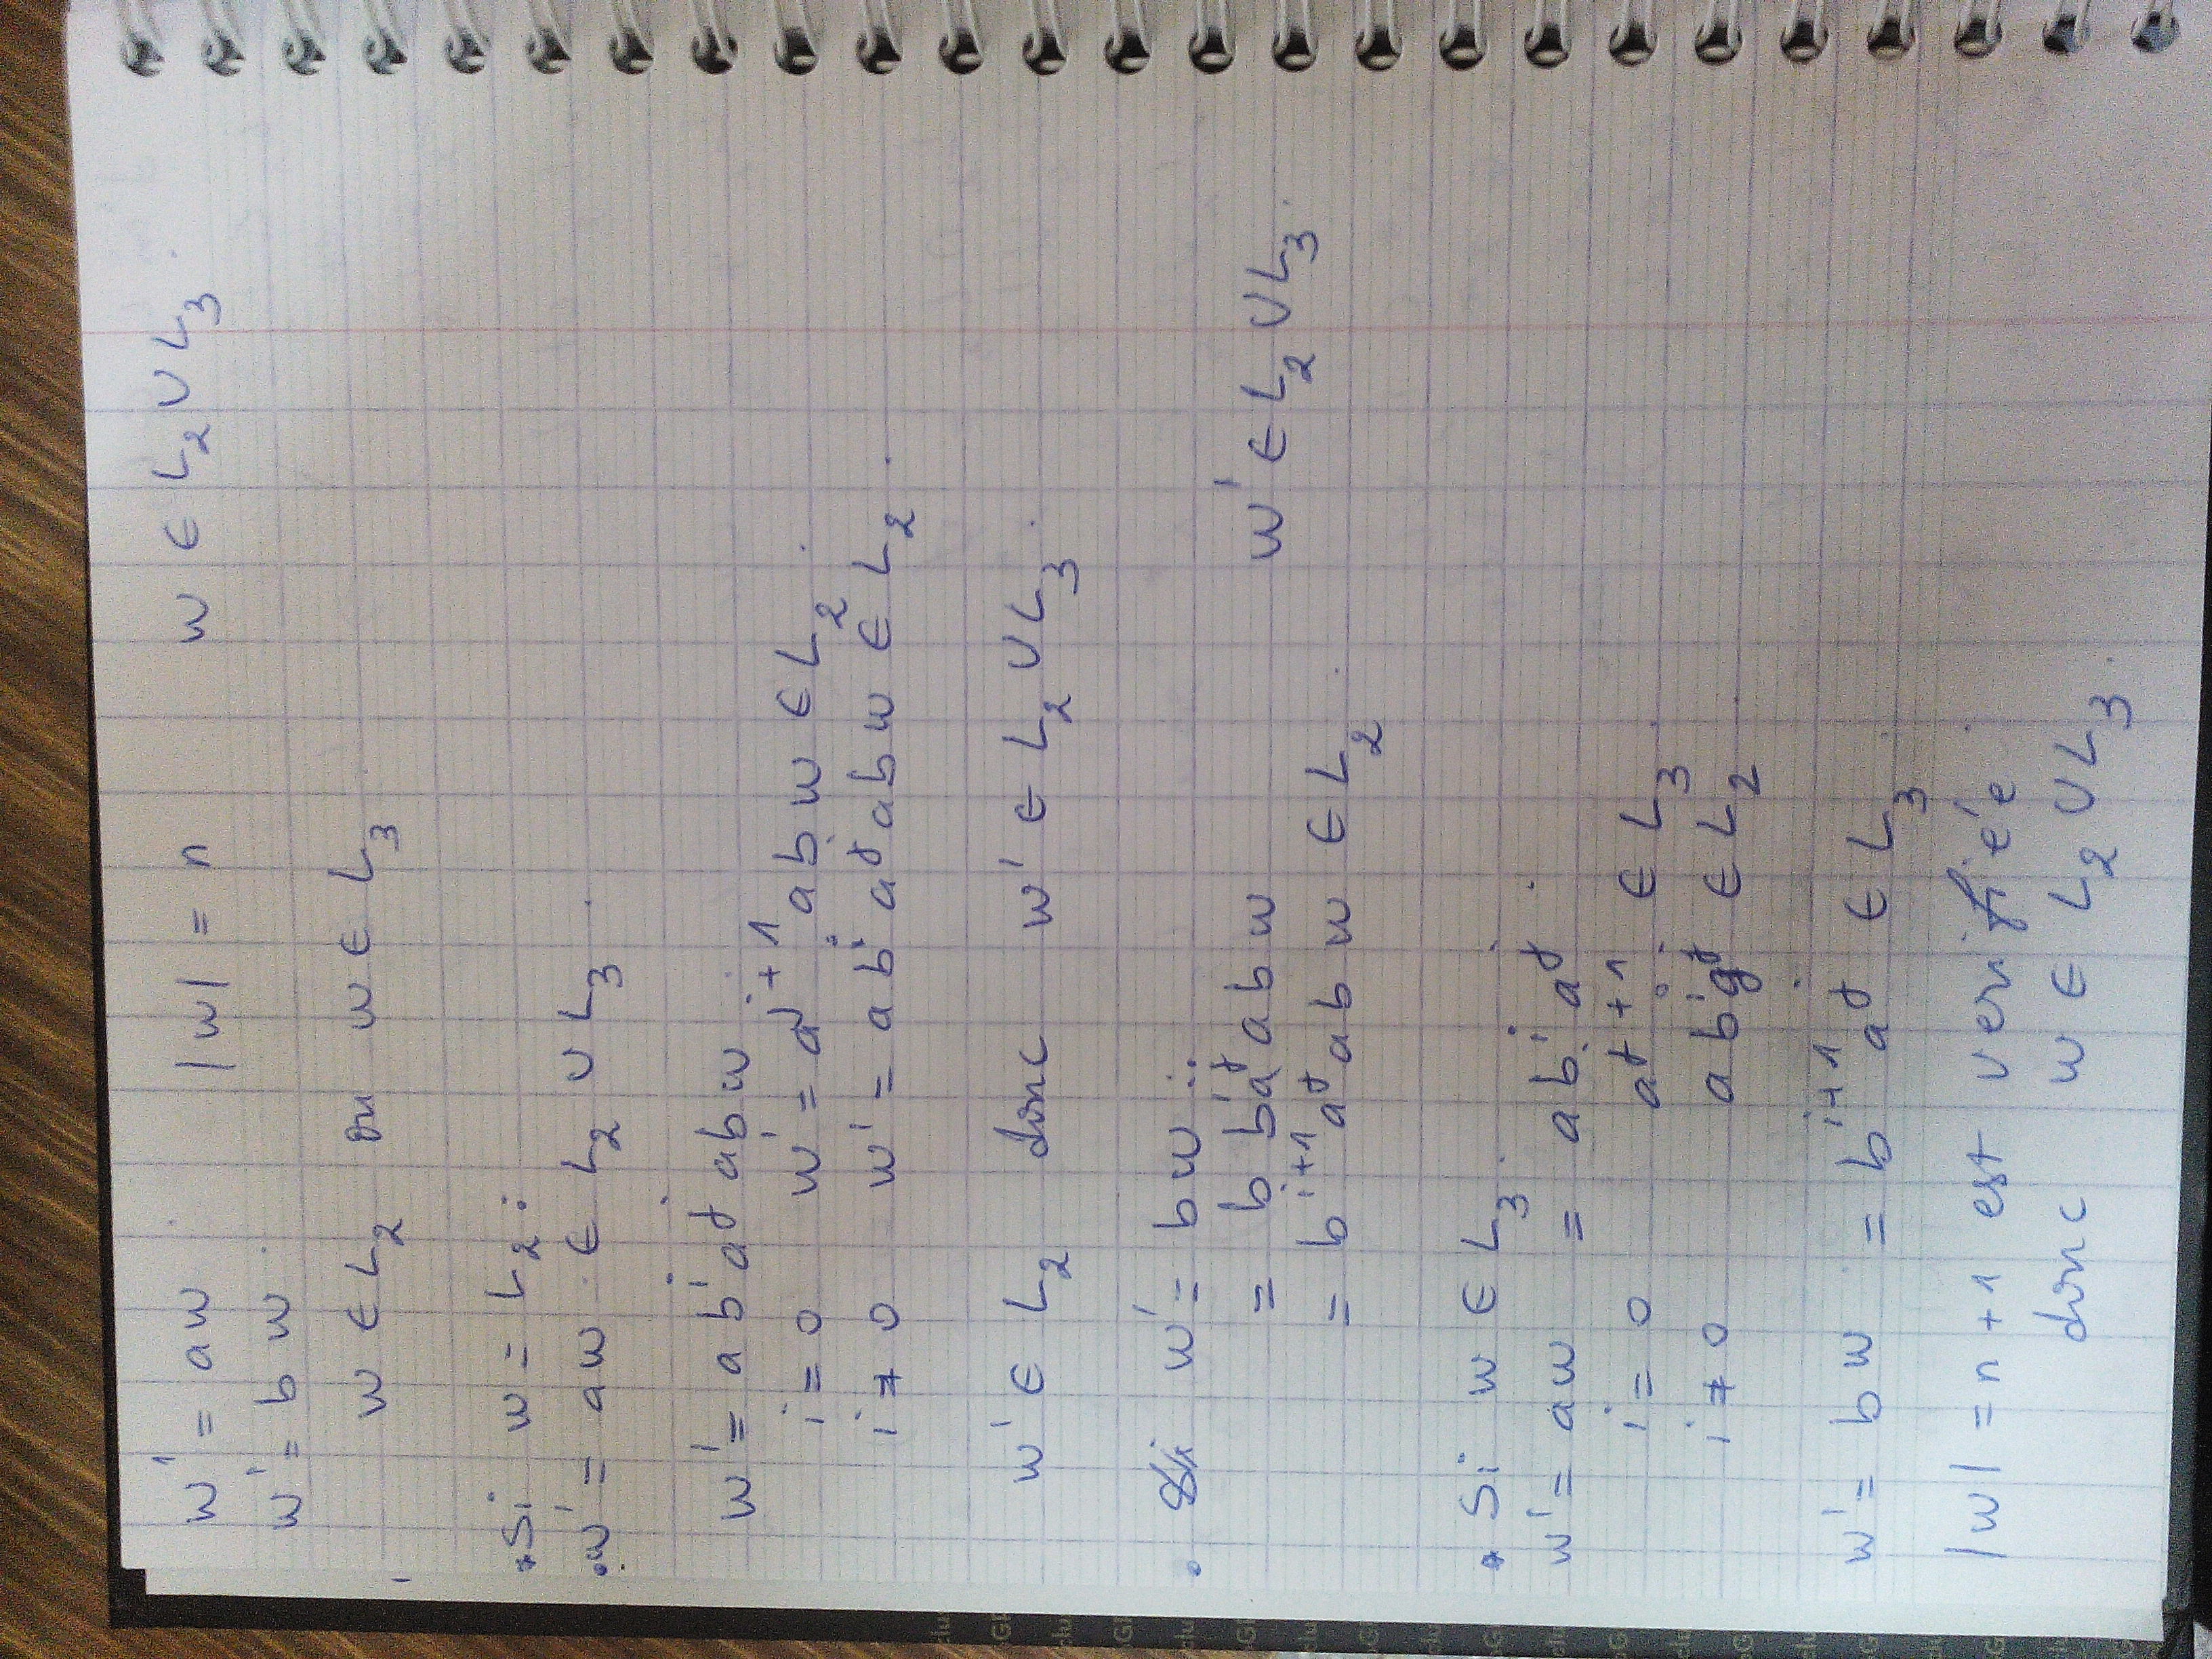 w' = aw |w| = n w ∈ L₂ ∪ L₃.
w' = bw.
w ∈ L₂ ou w ∈ L₃.
* Si w = L₂ :
• w' = aw ∈ L₂ ∪ L₃.
w' = a bⁱ aʲ ab w.
i = 0 w' = aʲ⁺¹ ab w ∈ L₂.
i ≠ 0 w' = a bⁱ aʲ ab w ∈ L₂.
w' ∈ L₂ donc w' ∈ L₂ ∪ L₃.
• Si w' = bw :
= b bⁱ aʲ ab w w' ∈ L₂ ∪ L₃.
= bⁱ⁺¹ aʲ ab w ∈ L₂.
* Si w ∈ L₃.
w' = aw = a bⁱ aʲ.
i = 0 aʲ⁺¹ ∈ L₃.
i ≠ 0 a bⁱ aʲ ∈ L₂.
w' = bw = bⁱ⁺¹ aʲ ∈ L₃.
|w| = n + 1 est verifiée
donc w ∈ L₂ ∪ L₃.